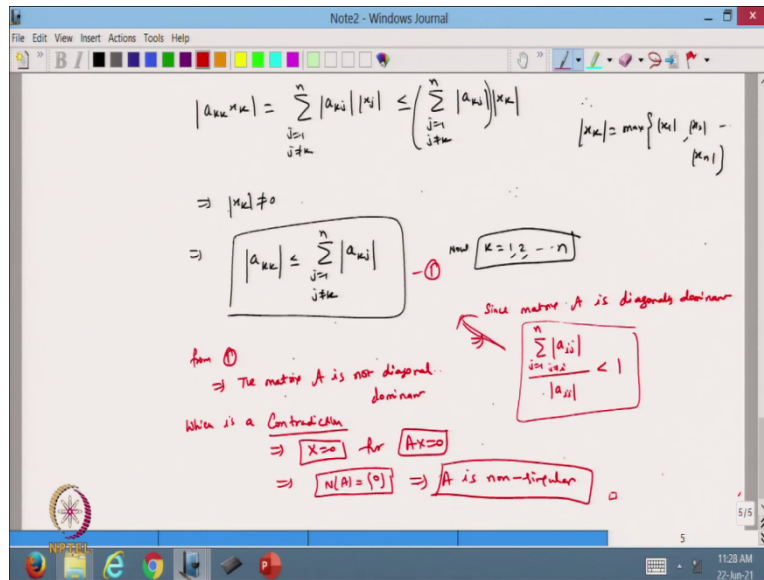 Note2 - Windows Journal
File Edit View Insert Actions Tools Help
|a_kk x_k| = Σ_{j=1, j≠k}^{n} |a_kj| |x_j| ≤ (Σ_{j=1, j≠k}^{n} |a_kj|) |x_k|
∴
|x_k| = max {|x_1|, |x_2| --
|x_n|}
⇒ |x_k| ≠ 0
⇒ |a_kk| ≤ Σ_{j=1, j≠k}^{n} |a_kj| - ①
Now k = 1, 2, -- n
Since matrix A is diagonally dominant
⇒ Σ_{j=1, j≠i}^{n} |a_ij| / |a_ii| < 1
from ①
⇒ The matrix A is not diagonal
dominant
Which is a Contradiction
⇒ X=0 for AX=0
⇒ N(A) = {0} ⇒ A is non-singular
5/5
5
NPTEL
11:28 AM
22-Jun-21